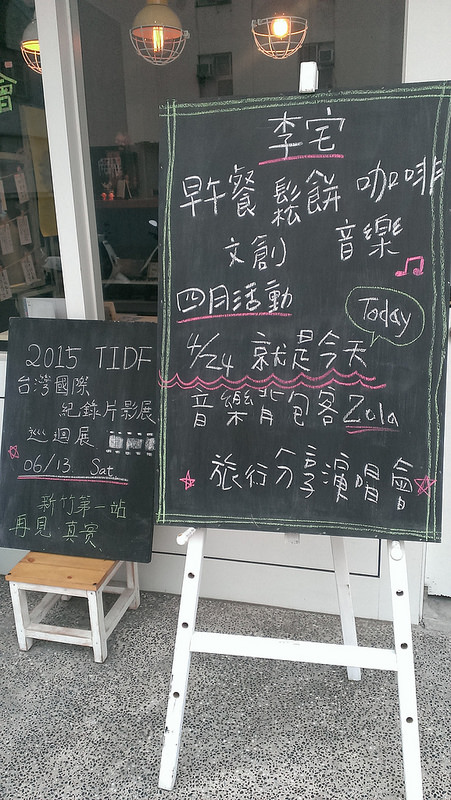 李宅
早午餐 鬆餅 咖啡
文創 音樂
四月活動
Today
4/24 就是今天
音樂背包客Zola
旅行分享演唱會
2015 TIDF
台灣國際
紀錄片影展
巡迴展
06/13. Sat.
新竹第一站
再見·真實